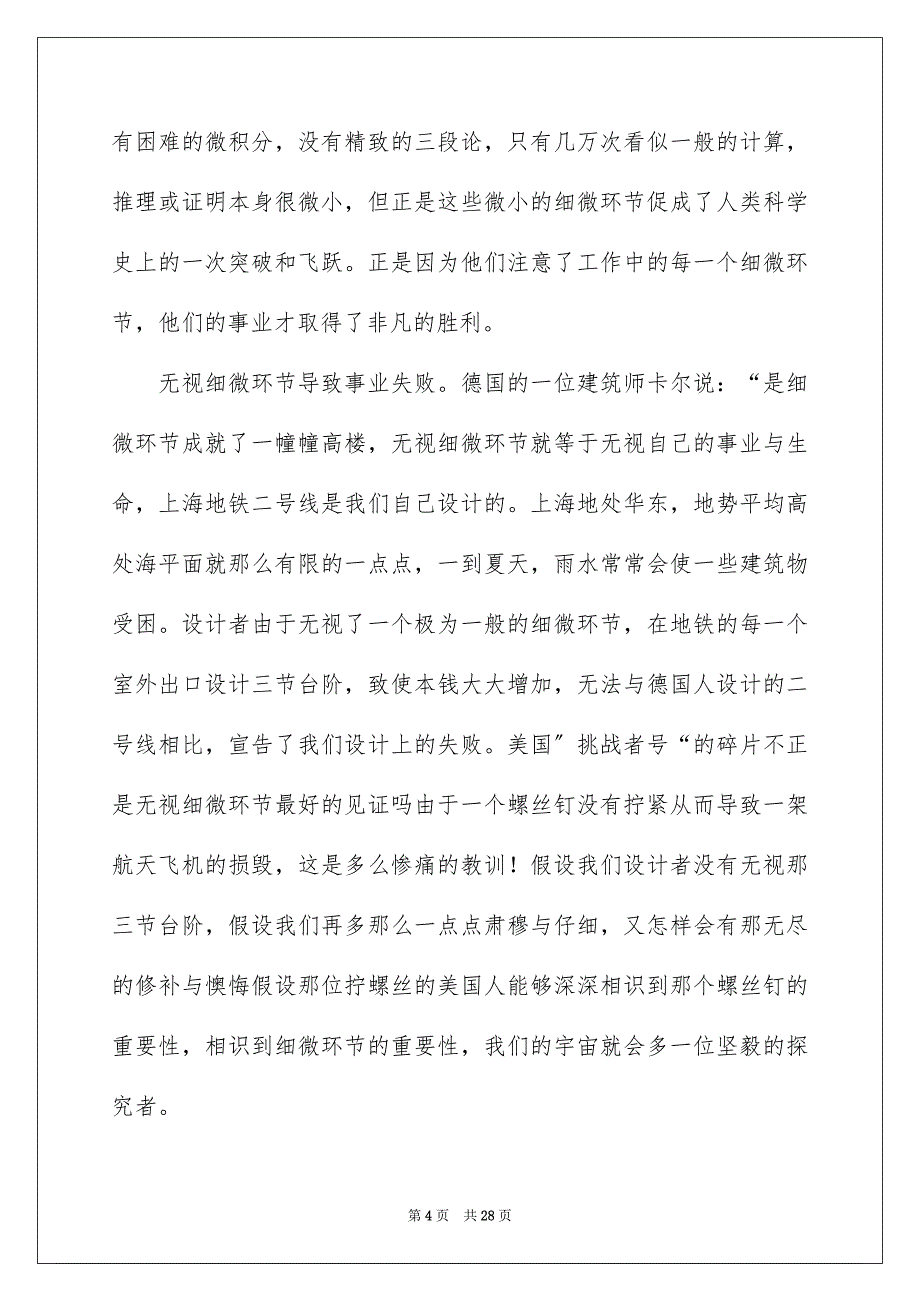 有困难的微积分，没有精致的三段论，只有几万次看似一般的计算，
推理或证明本身很微小，但正是这些微小的细微环节促成了人类科学
史上的一次突破和飞跃。正是因为他们注意了工作中的每一个细微环
节，他们的事业才取得了非凡的胜利。
无视细微环节导致事业失败。德国的一位建筑师卡尔说：“是细
微环节成就了一幢幢高楼，无视细微环节就等于无视自己的事业与生
命，上海地铁二号线是我们自己设计的。上海地处华东，地势平均高
处海平面就那么有限的一点点，一到夏天，雨水常常会使一些建筑物
受困。设计者由于无视了一个极为一般的细微环节，在地铁的每一个
室外出口设计三节台阶，致使本钱大大增加，无法与德国人设计的二
号线相比，宣告了我们设计上的失败。美国〞挑战者号“的碎片不正
是无视细微环节最好的见证吗由于一个螺丝钉没有拧紧从而导致一架
航天飞机的损毁，这是多么惨痛的教训！假设我们设计者没有无视那
三节台阶，假设我们再多那么一点点肃穆与仔细，又怎样会有那无尽
的修补与懊悔假设那位拧螺丝的美国人能够深深相识到那个螺丝钉的
重要性，相识到细微环节的重要性，我们的宇宙就会多一位坚毅的探
究者。
第 4 页 共 28 页